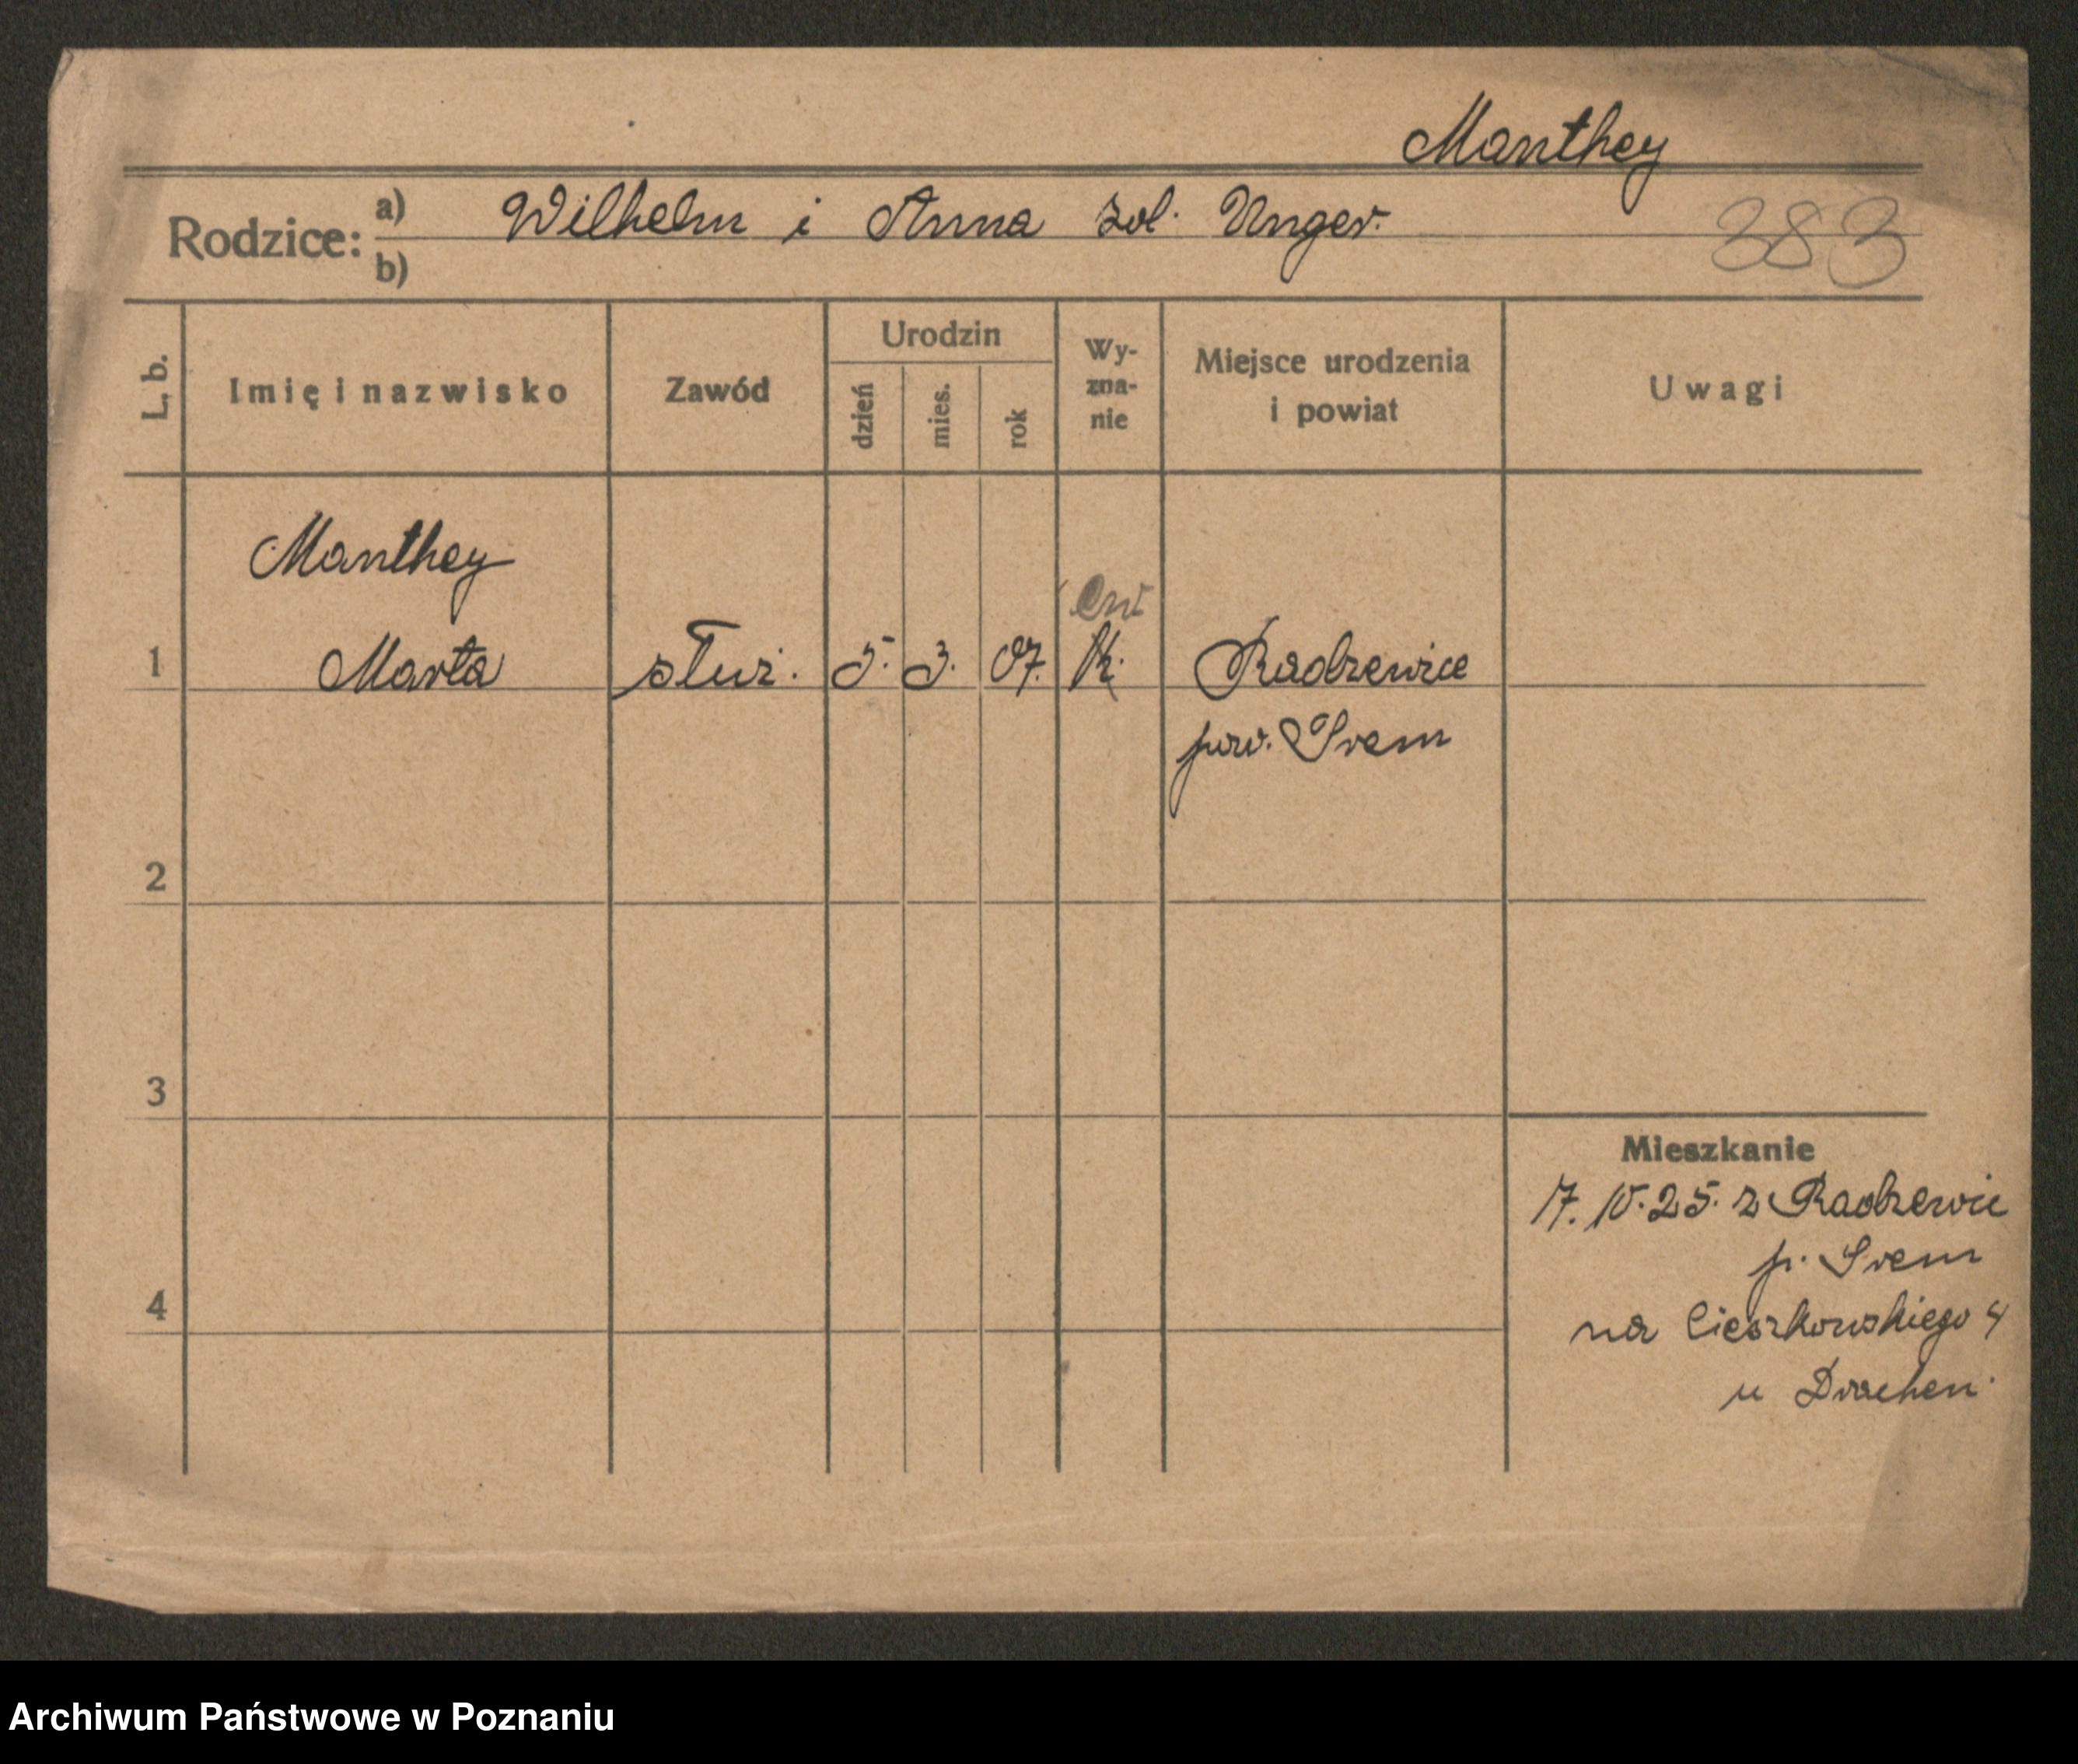 Manthey
Rodzice: a) Wilhelm i Anna zol. Unger.
b)
383
L. b. Imię i nazwisko Zawód Urodzin dzień mies. rok Wy-zna-nie Miejsce urodzenia i powiat Uwagi
Manthey
ew
1 Marta służ. 5. 3. 07. K. Radzewice
pow. Srem
2
3
Mieszkanie
17. 10. 25. z Radzewic
p. Srem
4
na Cieszkowskiego 4
u Drachen.
Archiwum Państwowe w Poznaniu